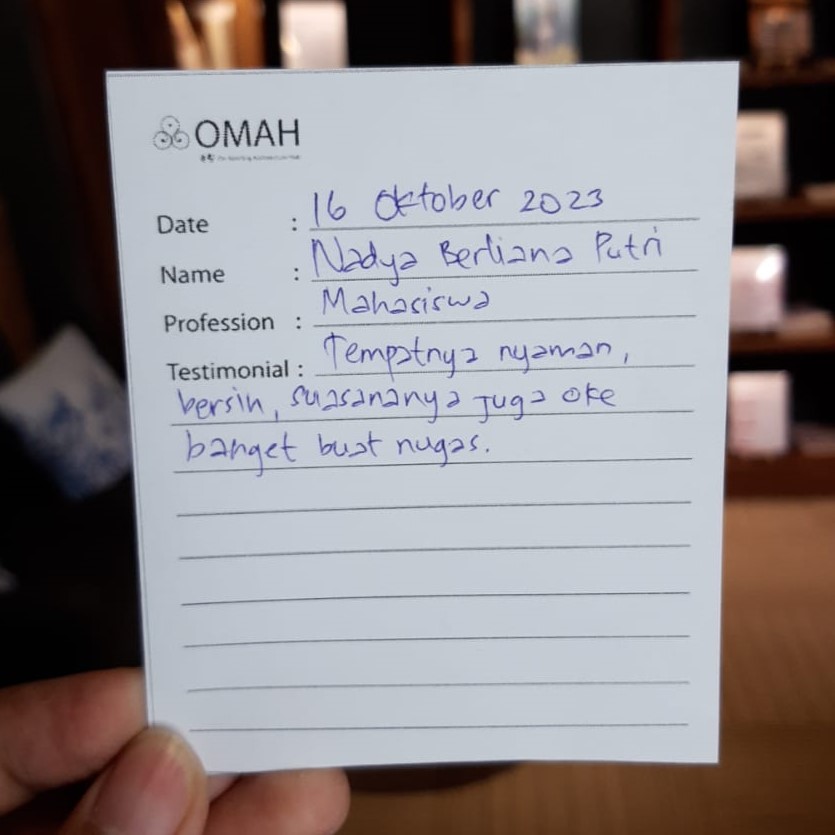 OMAH
Date : 16 Oktober 2023
Name : Nadya Berliana Putri
Profession : Mahasiswa
Testimonial : Tempatnya nyaman,
bersih, suasananya juga oke
banget buat nugas.